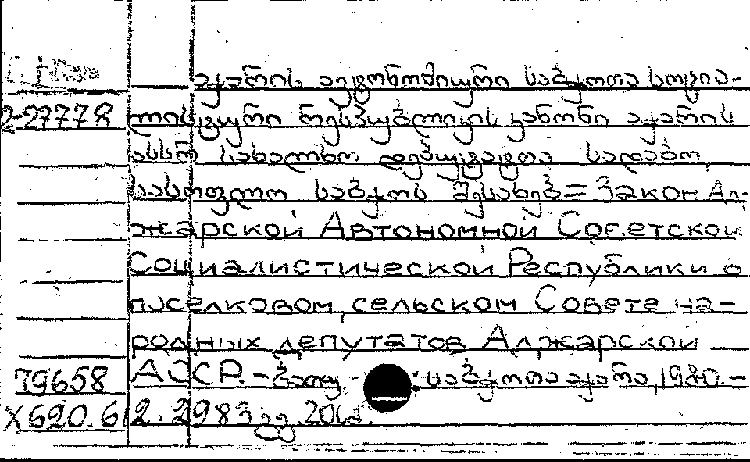 აჭარის ავტონომიური საბჭოთა სოცია-
2-27778 ლისტური რესპუბლიკის კანონი აჭარის
ასსრ სახალხო დეპუტატთა სადაბო,
სასოფლო საბჭოს შესახებ = Закон Ад-
жарской Автономной Советской
Социалистической Республики о
поселковом, сельском Совете на-
родных депутатов Аджарской
79658 АССР. - ბათუმი: საბჭოთა აჭარა, 1980. -
X620.612.2 983 გვ. 20